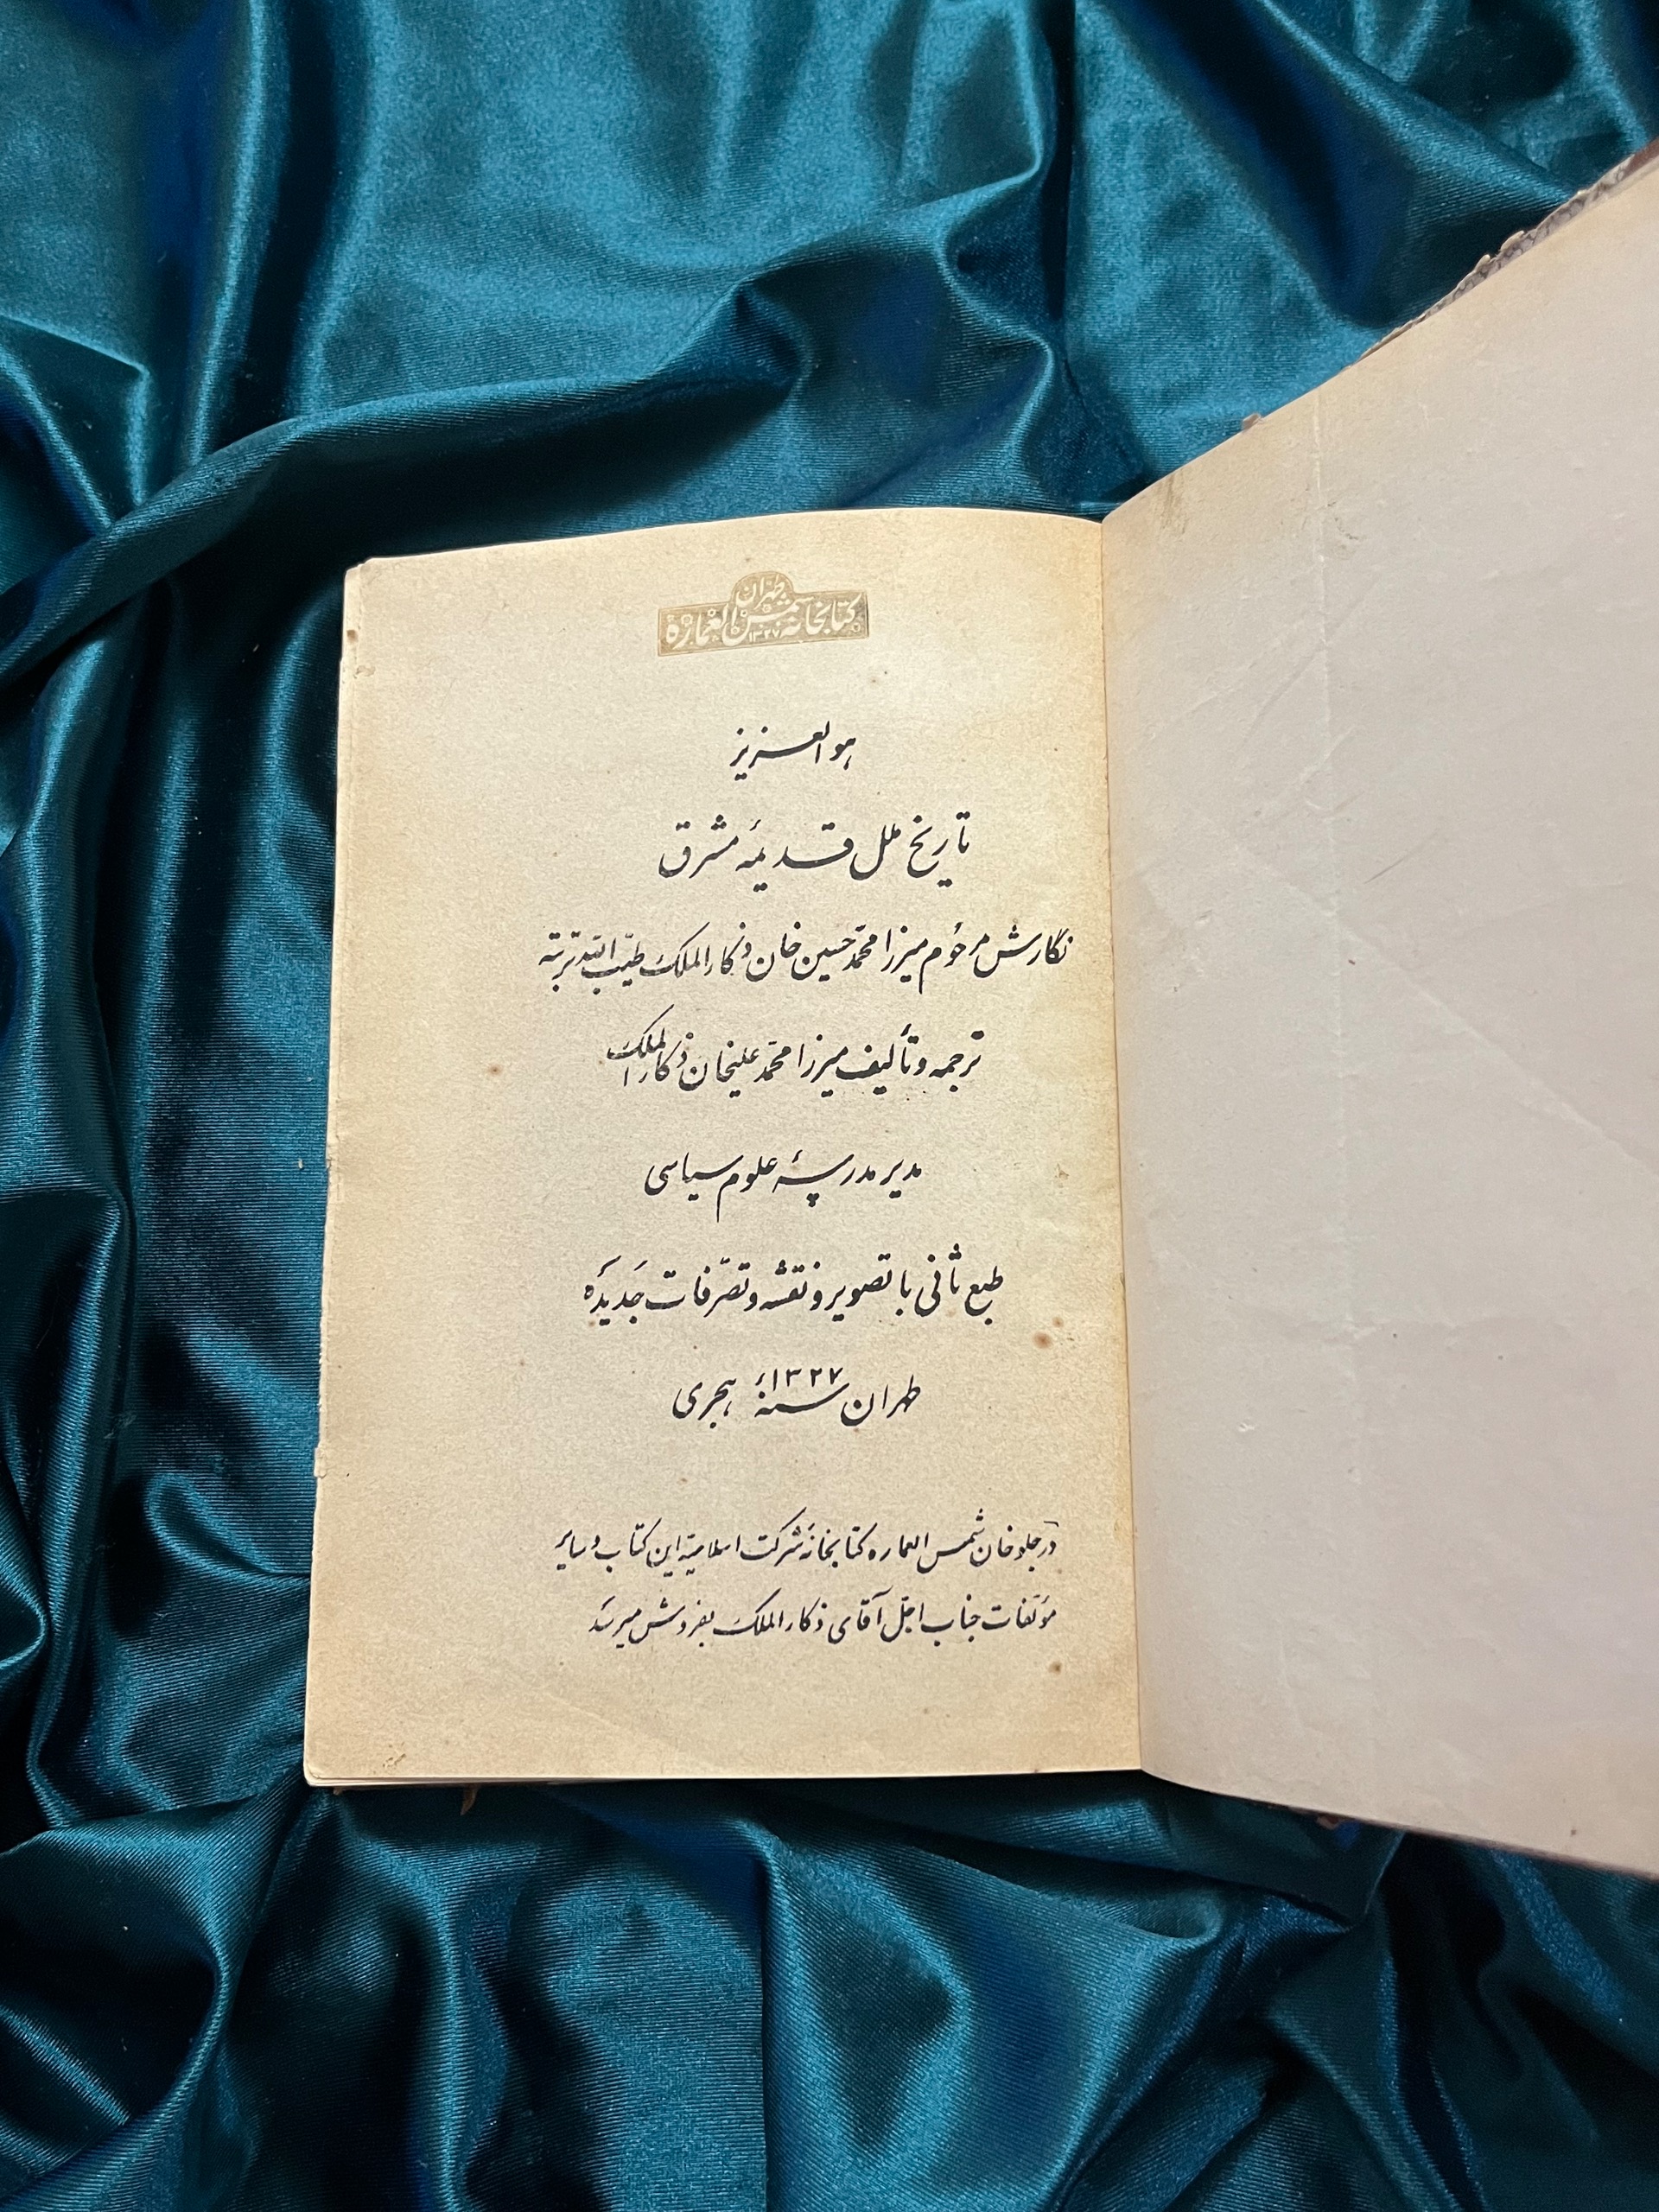 طهران
کتابخانه شمس العماره
۱۳۲۷
هو العزیز
تاریخ ملل قدیمهٔ مشرق
نگارش مرحوم میرزا محمّد حسین خان ذکاء الملک طیّب الله تربته
ترجمه و تألیف میرزا محمّد علیخان ذکاء الملک
مدیر مدرسهٔ علوم سیاسی
طبع ثانی با تصویر و نقشه و تصرّفات جَدیدَه
طهران سنهٔ ۱۳۲۷ هجری
در جلوخان شمس العماره کتابخانهٔ شرکت اسلامیّه این کتاب و سایر
مؤلفات جناب اجلّ آقای ذکاء الملک بفروش میرسد